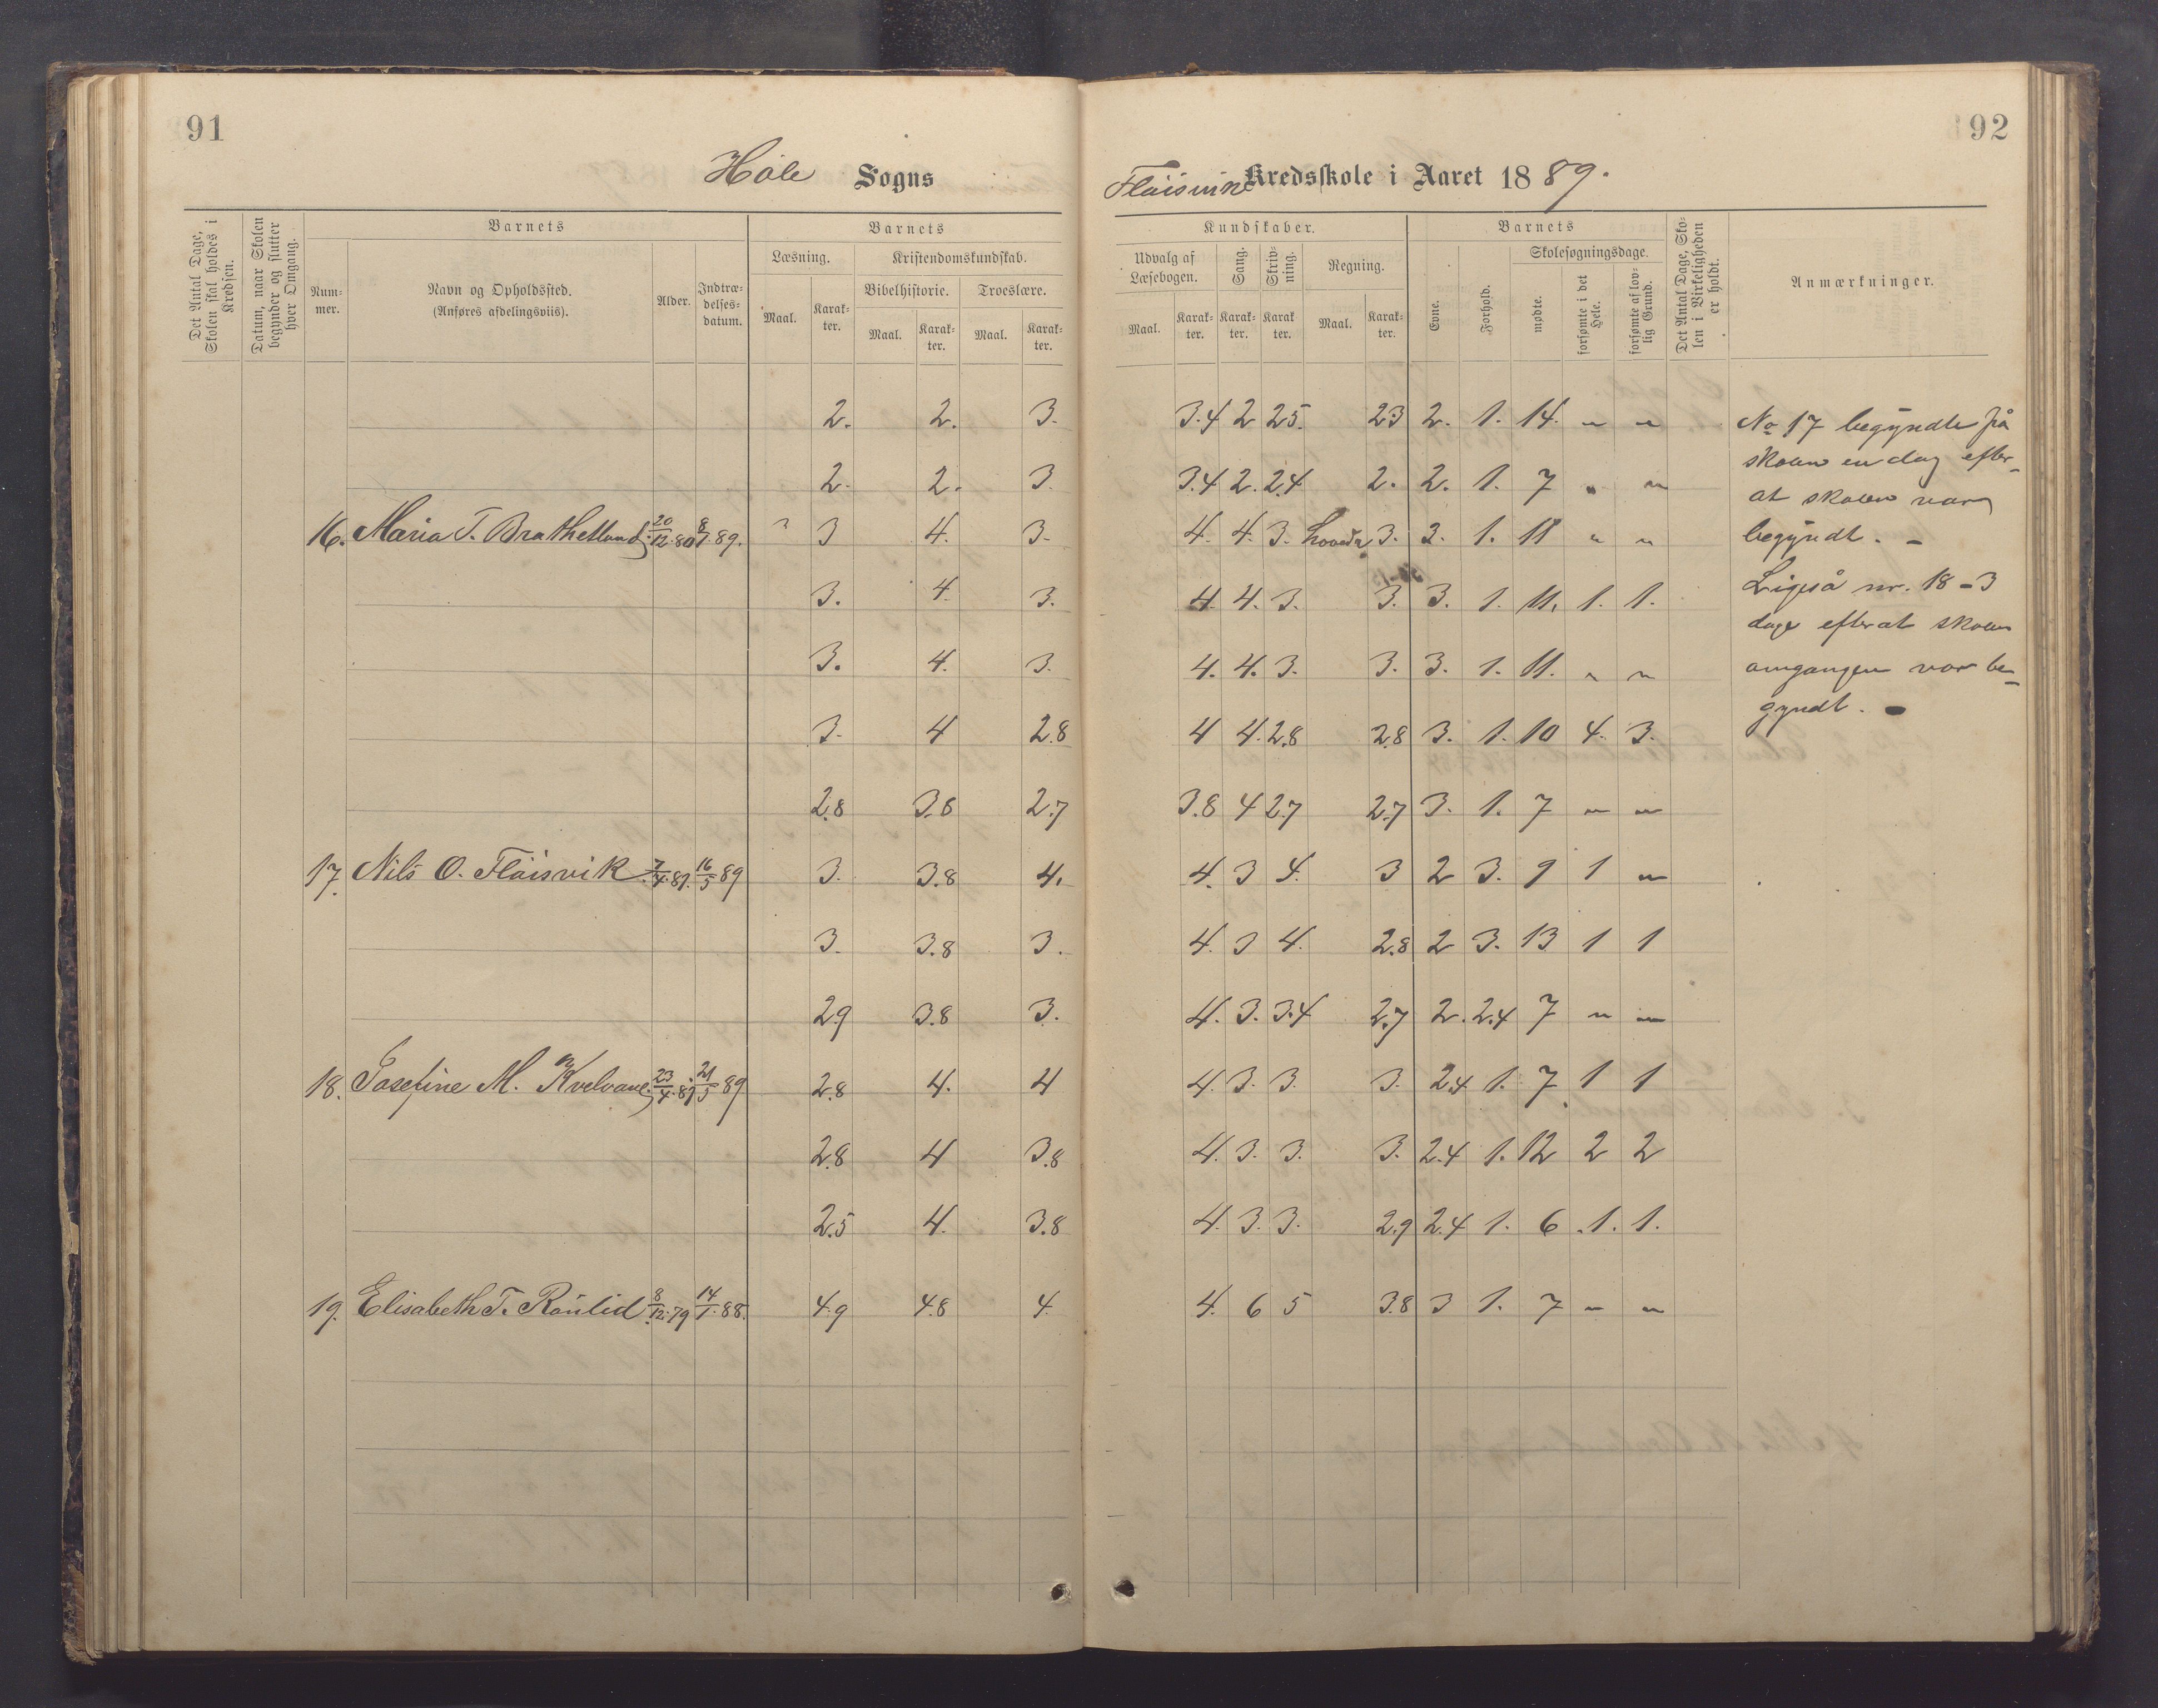 91
Höle Sogns
Det Antal Dage, Skolen skal holdes i Kredsen.
Datum, naar Skolen begynder og slutter hver Omgang.
Barnets
Nummer.
Navn og Opholdssted.
(Anføres afdelingsviis).
Alder.
Indtrædelsesdatum.
Barnets
Læsning.
Maal.
Karakter.
Kristendomskundskab.
Bibelhistorie.
Maal.
Karakter.
Troeslære.
Maal.
Karakter.
2. 2. 3.
2. 2. 3
16. Maria T. Brathetland 20/12.80 8/1.89. 3 4. 3.
3. 4. 3.
3. 4. 3.
3. 4 2.8
2.8 3.8 2.7
17. Nils O. Flöisvik 7/4.81. 16/5 89 3. 3.8 4.
3. 3.8 3.
2.9 3.8 3.
18. Josefine M. Kvelvane 23/4.81 21/5 89 2.8 4. 4
2.8 4 3.8
2.5 4. 3.8
19. Elisabeth T. Röilid 8/12.79 14/1.88. 4.9 4.8 4.
92
Flöisvik Kredsskole i Aaret 1889.
Kundskaber.
Udvalg af Læsebogen.
Maal.
Karakter.
Sang.
Karakter.
Skrivning.
Karakter.
Regning.
Maal.
Karakter.
Barnets
Evne.
Forhold.
Skolesøgningsdage.
mødte.
forsømte i det Hele.
forsømte af lovlig Grund.
Det Antal Dage, Skolen i Virkeligheden er holdt.
Anmærkninger.
3.4 2 2.5. 2.3 2. 1. 14. " "
3.4 2. 2.4 2. 2. 1. 7 " "
4. 4. 3. 3. 3. 1. 11 " "
4. 4. 3. 3. 3. 1. 11. 1. 1.
4. 4. 3. 3. 3. 1. 11. " "
4 4. 2.8 2.8 3. 1. 10 4. 3.
3.8 4 2.7 2.7 3. 1. 7 " "
4. 3 4. 3 2 3. 9 1 "
4. 3 4. 2.8 2 3. 13 1 1
4. 3. 3.4 2.7 2. 2.4 7 " "
4. 3. 3. 3. 2.4 1. 7 1 1
4. 3. 3. 3. 2.4 1. 12 2 2
4. 3. 3. 2.9 2.4 1. 6 1. 1.
4. 6 5 3.8 3 1. 7 " "
No 17 begyndte på
skolen en dag efter-
at skolen var
begyndt. -
Ligeså nr. 18 - 3
dage efterat skole
omgangen var be-
gyndt. -